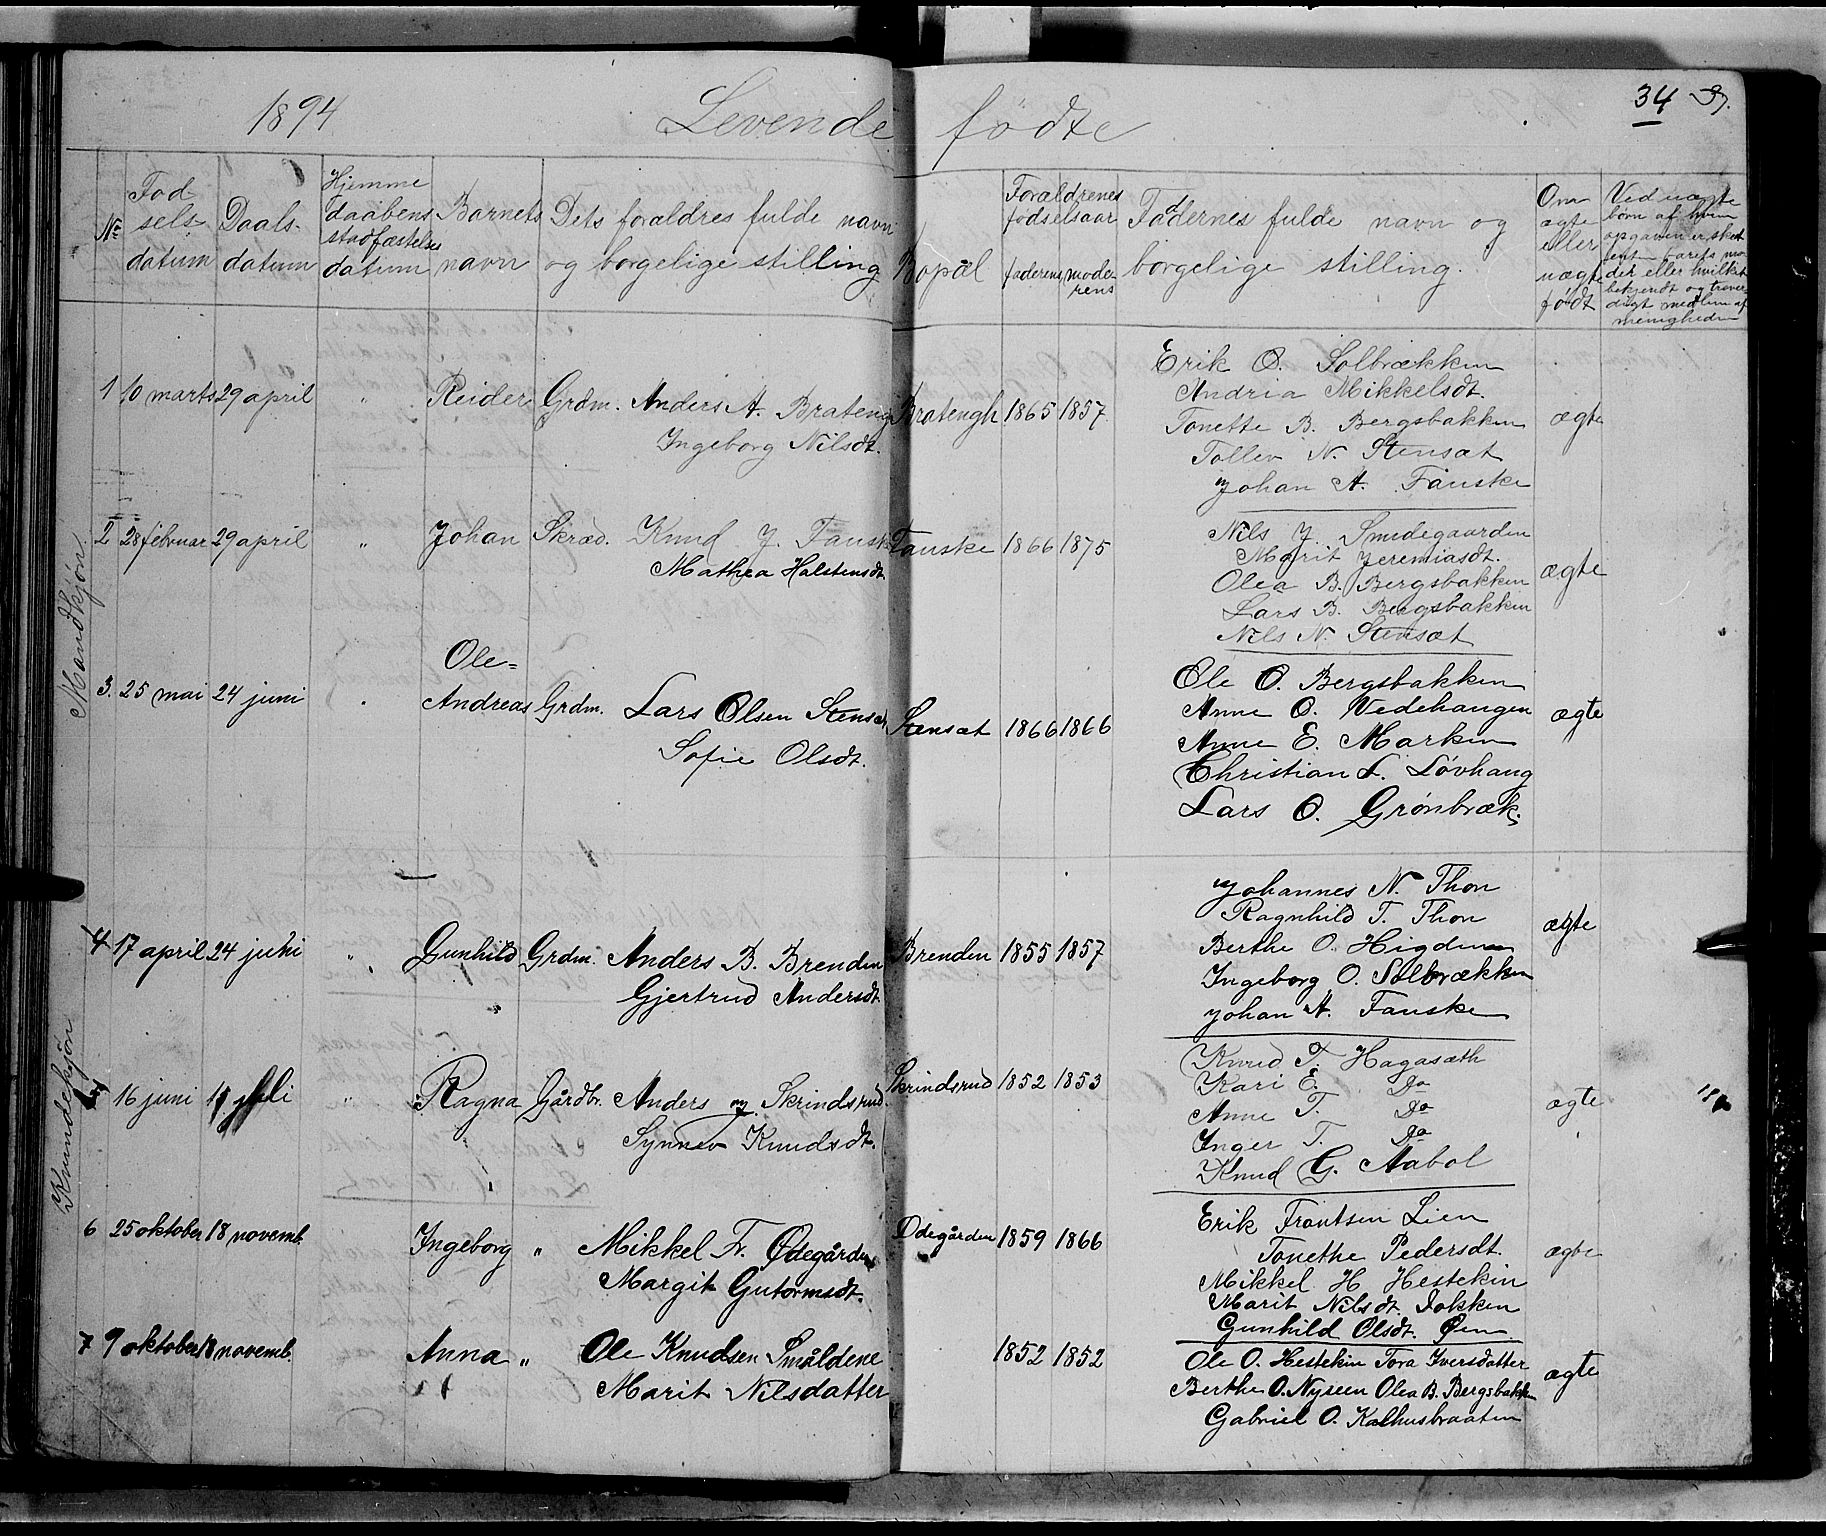 1894 Levende fødte 34
№ Fødselsdatum Daabsdatum Hjemmedaabens stadfæstelses datum Barnets navn Dets forældres fulde navn og borgelige stilling Bopæl Forældrenes fødselsaar faderens moderens Faddernes fulde navn og borgelige stilling. Om ægte eller uægte født Ved uægte børn af hvem opgaven er skeet
Mandkjøn
Erik O. Solbrækken
Andria Mikkelsdt.
1 10 marts 29 april " Reider Grdm. Anders A. Brateng Bratengh 1865 1857 Tonette B. Bergsbakken ægte
Ingeborg Nilsdt. Tollev N. Stensæt
Johan A. Fauske
2 28 februar 29 april " Johan Skræd. Knud J. Fausk Fauske 1866 1875 Nils J. Smedegaarden ægte
Mathea Halstensdt Marit Jeremiasdt.
Olea B. Bergsbakken
Lars B. Bergsbakken
Nils N. Stensæt
Ole=
3. 25 mai 24 juni Andreas Grdm. Lars Olsen Stensæt Stensæt 1866 1866 Ole O. Bergsbakken ægte
Sofie Olsdt. Anne O. Vedehaugen
Anne E. Marken
Christian L. Løvhaug
Lars O. Grønbræk.
Kvindekjøn
Johannes N. Thon
Ragnhild T. Thon
4 17 april 24 juni " Gunhild Grdm. Anders B. Brenden Brenden 1855 1857 Berthe O. Higden ægte
Gjertrud Andersdt. Ingeborg O. Solbrækken
Johan A. Fauske
Knud T. Hagasæth
Kari E. Do
16 juni juli " Ragna Gårdbr. Anders Skrindsrud Skrindsrud 1852 1853 Anne T. Do ægte
Synnev Knudsdt. Inger T. Do
Knud G. Aabol
6 25 oktober 18 novemb. Ingeborg " Mikkel Fr. Ødegården Ødegården 1859 1866 Erik Frantsen Lien ægte
Margit Gutormsdt. Tonethe Pedersdt.
Mikkel H Hestekin
Marit Nilsdt. Dokken
Gunhild Olsdt. Øen
7 9 oktober 18 novemb. Anna " Ole Knudsen Småldene 1852 1852 Ole O. Hestekin Tora Iversdatter ægte
Marit Nilsdatter Berthe O. Nyseen Olea B. Bergsbakken
Gabriel O. Kalhusbraaten